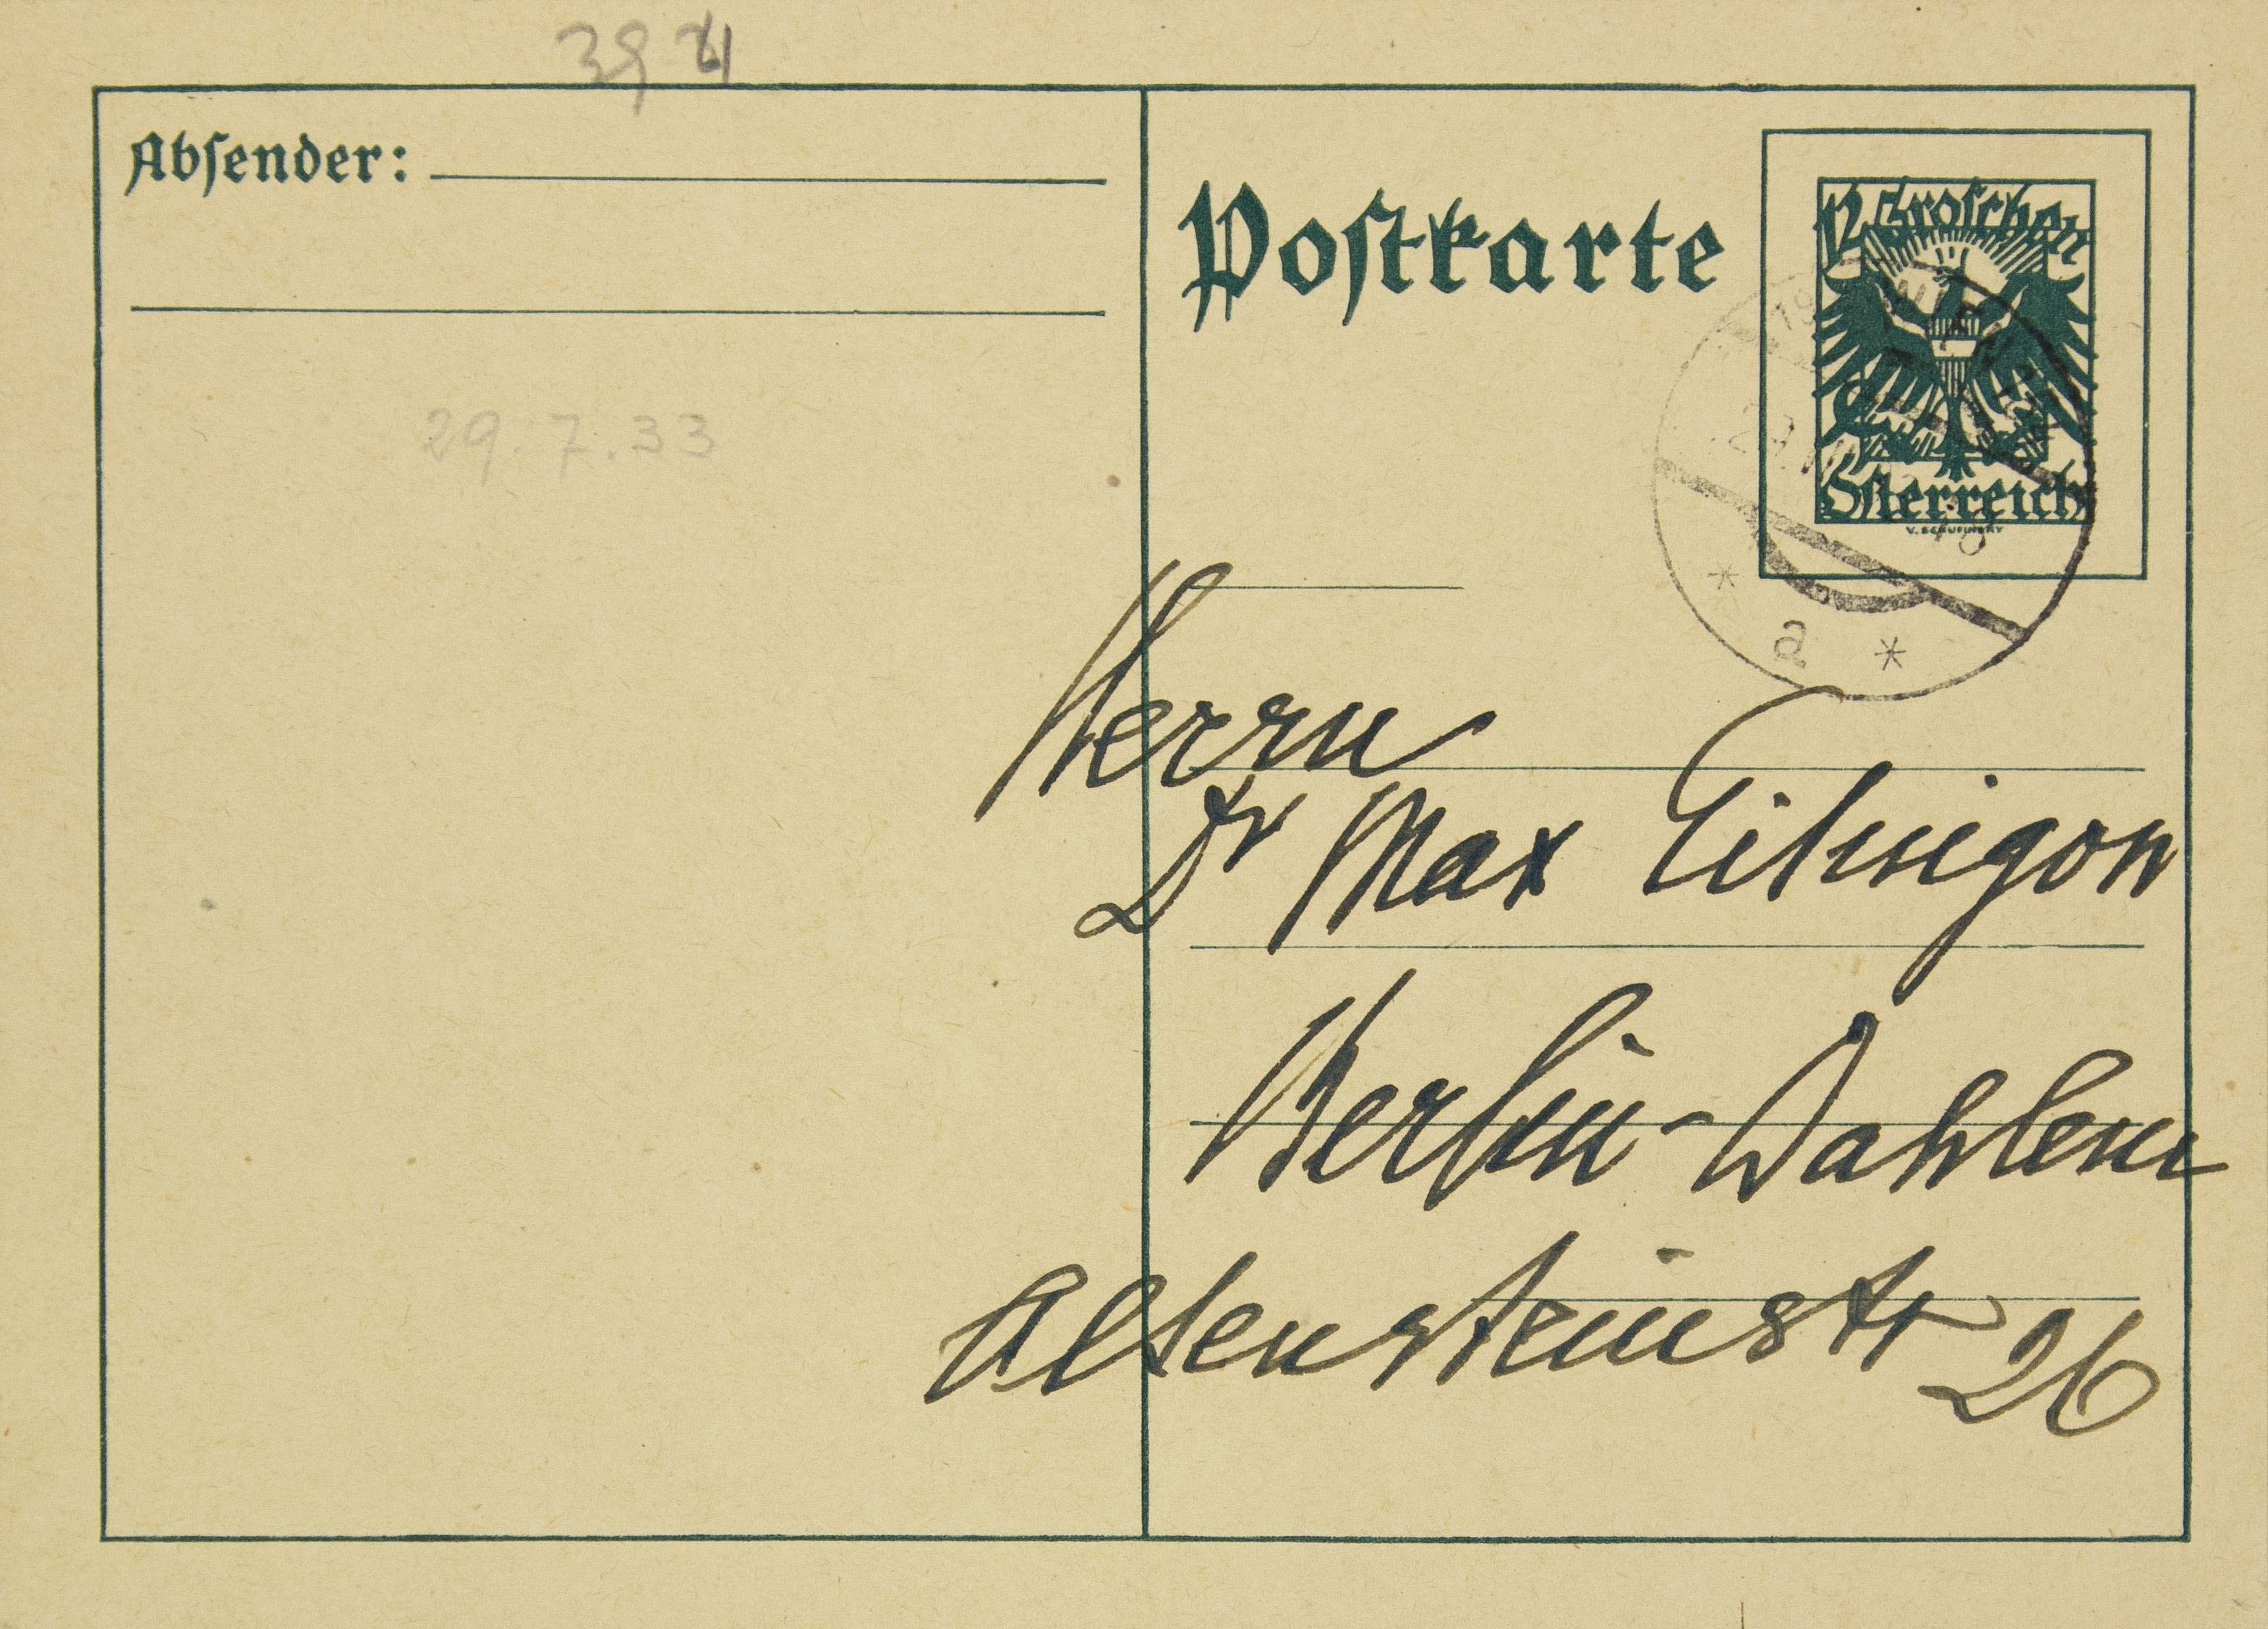 Absender:
29.7.33
Postkarte
12 Groschen
Österreich
a
Herrn
Dr Max Eitingon
Berlin-Dahlem
Altensteinstr 26